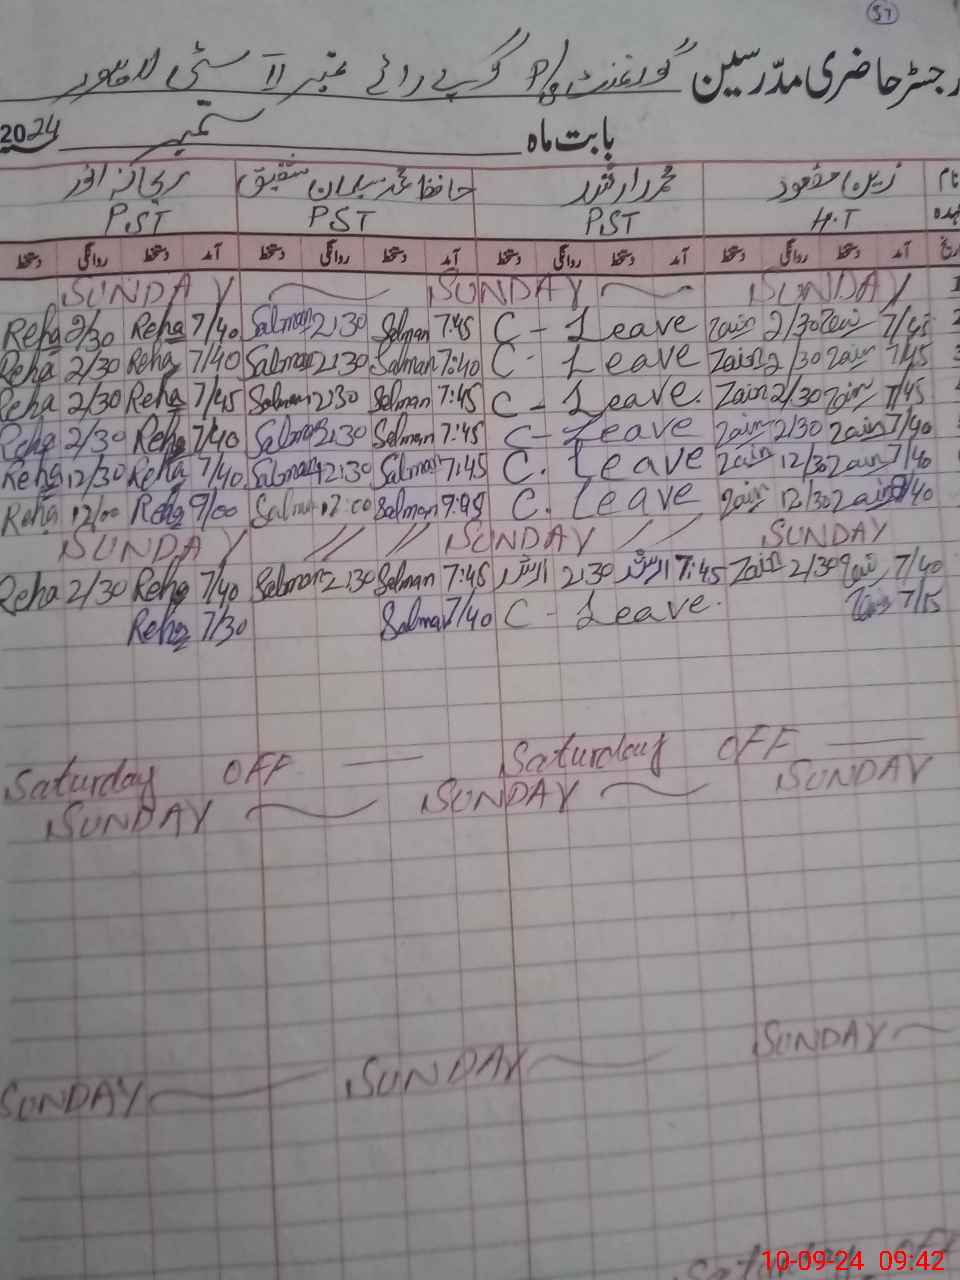 57
رجسٹر حاضری مدرسین گورنمنٹ P/S گوپے رائے نمبر 11 سٹی لاہور
بابت ماہ ستمبر 2024
نام زین مقصود محمد ارشد حافظ محمد سلمان شفیق ریحانہ انور
عہدہ H.T PST PST PST
تاریخ آمد دستخط روانگی دستخط آمد دستخط روانگی دستخط آمد دستخط روانگی دستخط آمد دستخط روانگی دستخط
SUNDAY SUNDAY SUNDAY 1
Reha 2/30 Reha 7/40 Salman 2:30 Salman 7:45 C - Leave Zain 2/30 Zain 7/45 2
Reha 2/30 Reha 7/40 Salman 2:30 Salman 7:40 C - Leave Zain 2/30 Zain 7/45 3
Reha 2/30 Reha 7/45 Salman 2:30 Salman 7:45 C - Leave. Zain 2/30 Zain 7/45 4
Reha 2/30 Reha 7/40 Salman 2:30 Salman 7:45 C - Leave Zain 2/30 Zain 7/40
Reha 12/30 Reha 7/40 Salman 12:30 Salman 7:45 C. Leave Zain 12/30 Zain 7/40
Reha 12/00 Reha 9/00 Salman 12:00 Salman C. Leave Zain 12/30 Zain /40
SUNDAY // // SUNDAY // SUNDAY
Reha 2/30 Reha 7/40 Salman 2:30 Salman 7:45 ارشد 2:30 ارشد 7:45 Zain 2/30 Zain 7/40
Reha 7/30 Salman 7/40 C - Leave. Zain 7/15
Saturday OFF — Saturday OFF —
SUNDAY SUNDAY SUNDAY
SUNDAY SUNDAY SUNDAY
Saturday OFF
10-09-24 09:42